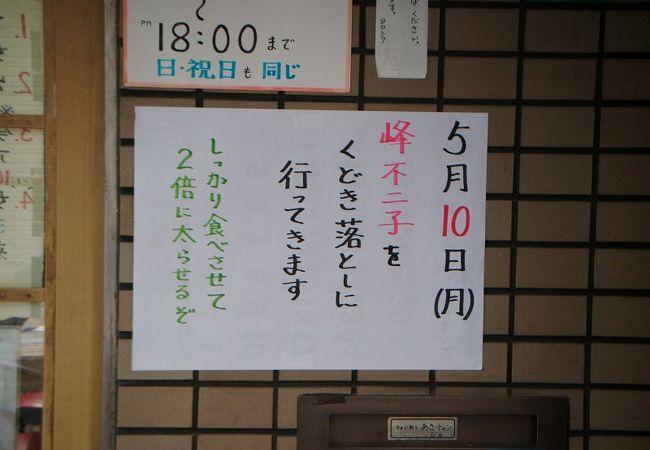 PM 18:00まで
日・祝日も同じ
5月10日(月)
峰不二子を
くどき落としに
行ってきます
しっかり食べさせて
2倍に太らせるぞ
1.
2.
3
4.